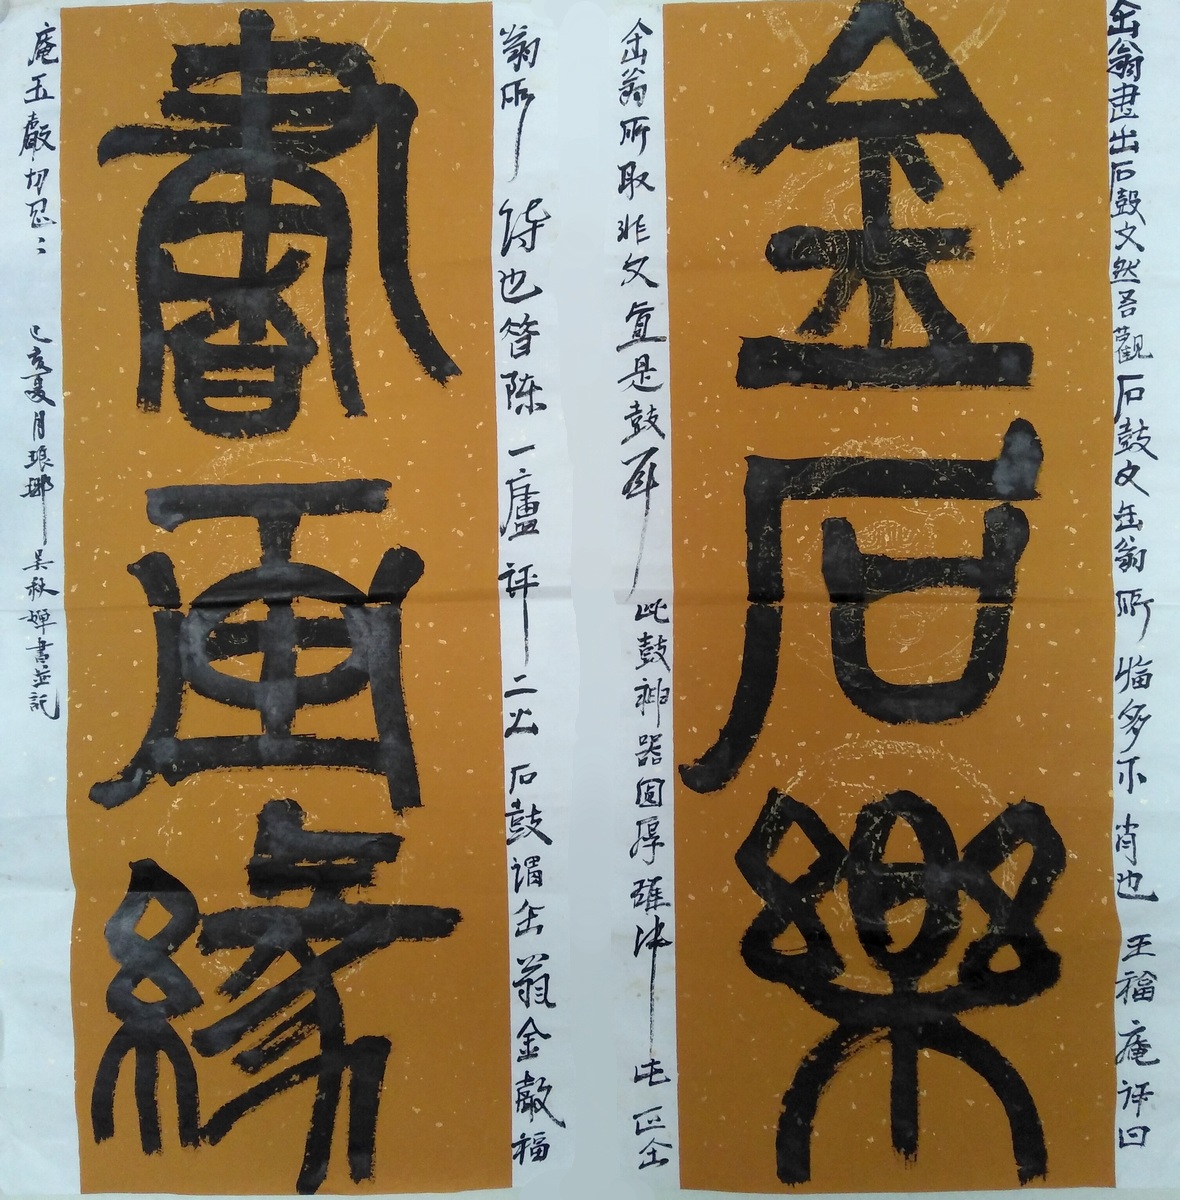 缶翁書出石鼓文然吾觀石鼓文缶翁所临多不肖也 王福庵评曰
金石樂
缶翁所取非文直是鼓耳 此鼓神器固厚雄 此正缶
翁所 待也 昔陈一廬评二公石鼓谓缶翁金 福
書画緣
庵玉 切忌 己亥夏月琅琊吴秋婵書並記